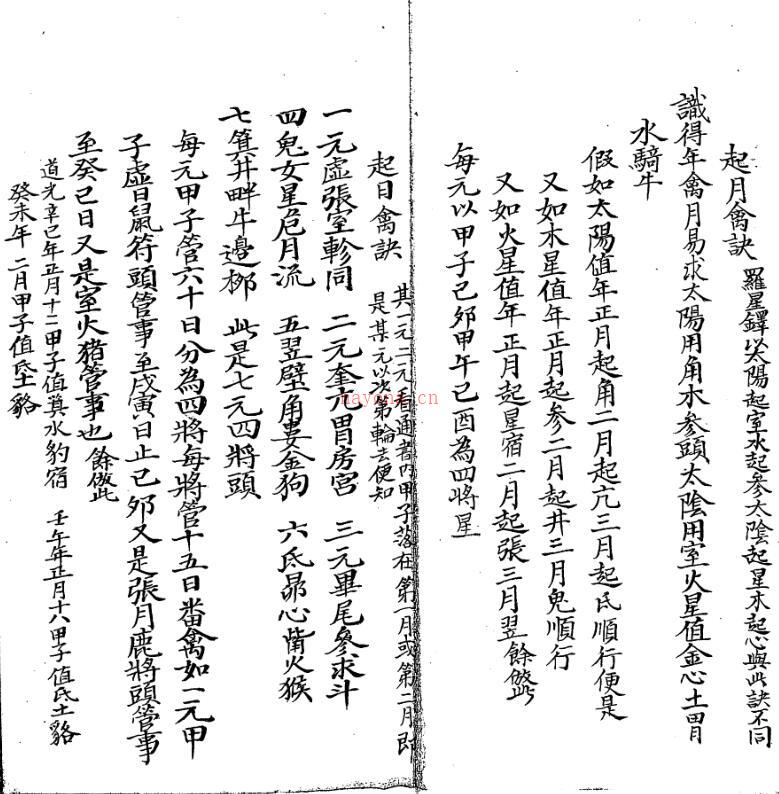 起月禽訣 羅星鐸以太陽起室水起參太陰起星木起心與此訣不同
識得年禽月易求太陽用角木參頭太陰用室火星值金心土胃
水騎牛
假如太陽值年正月起角二月起亢三月起氐順行便是
又如木星值年正月起參二月起井三月鬼順行
又如火星值年正月起星宿二月起張三月翌餘倣此
每元以甲子己夘甲午己酉為四将星
起日禽訣 其一元二元看通書内甲子落在第一月或第二月即
是某元以次第輪去便知
一元虛張室軫同 二元奎亢胃房宮 三元畢尾參求斗
四鬼女星危月流 五翌壁角婁金狗 六氐昴心觜火猴
七箕井畔牛邊栁 此是七元四將頭
每元甲子管六十日分為四將每將管十五日畨禽如一元甲
子虛日鼠符頭管事至戊寅日止己夘又是張月鹿將頭管事
至癸巳日又是室火豬管事也 餘倣此
道光辛巳年正月十二甲子值箕水豹宿 壬午年正月十六甲子值氐土貉
癸未年二月甲子值氐土貉
nayona.cn